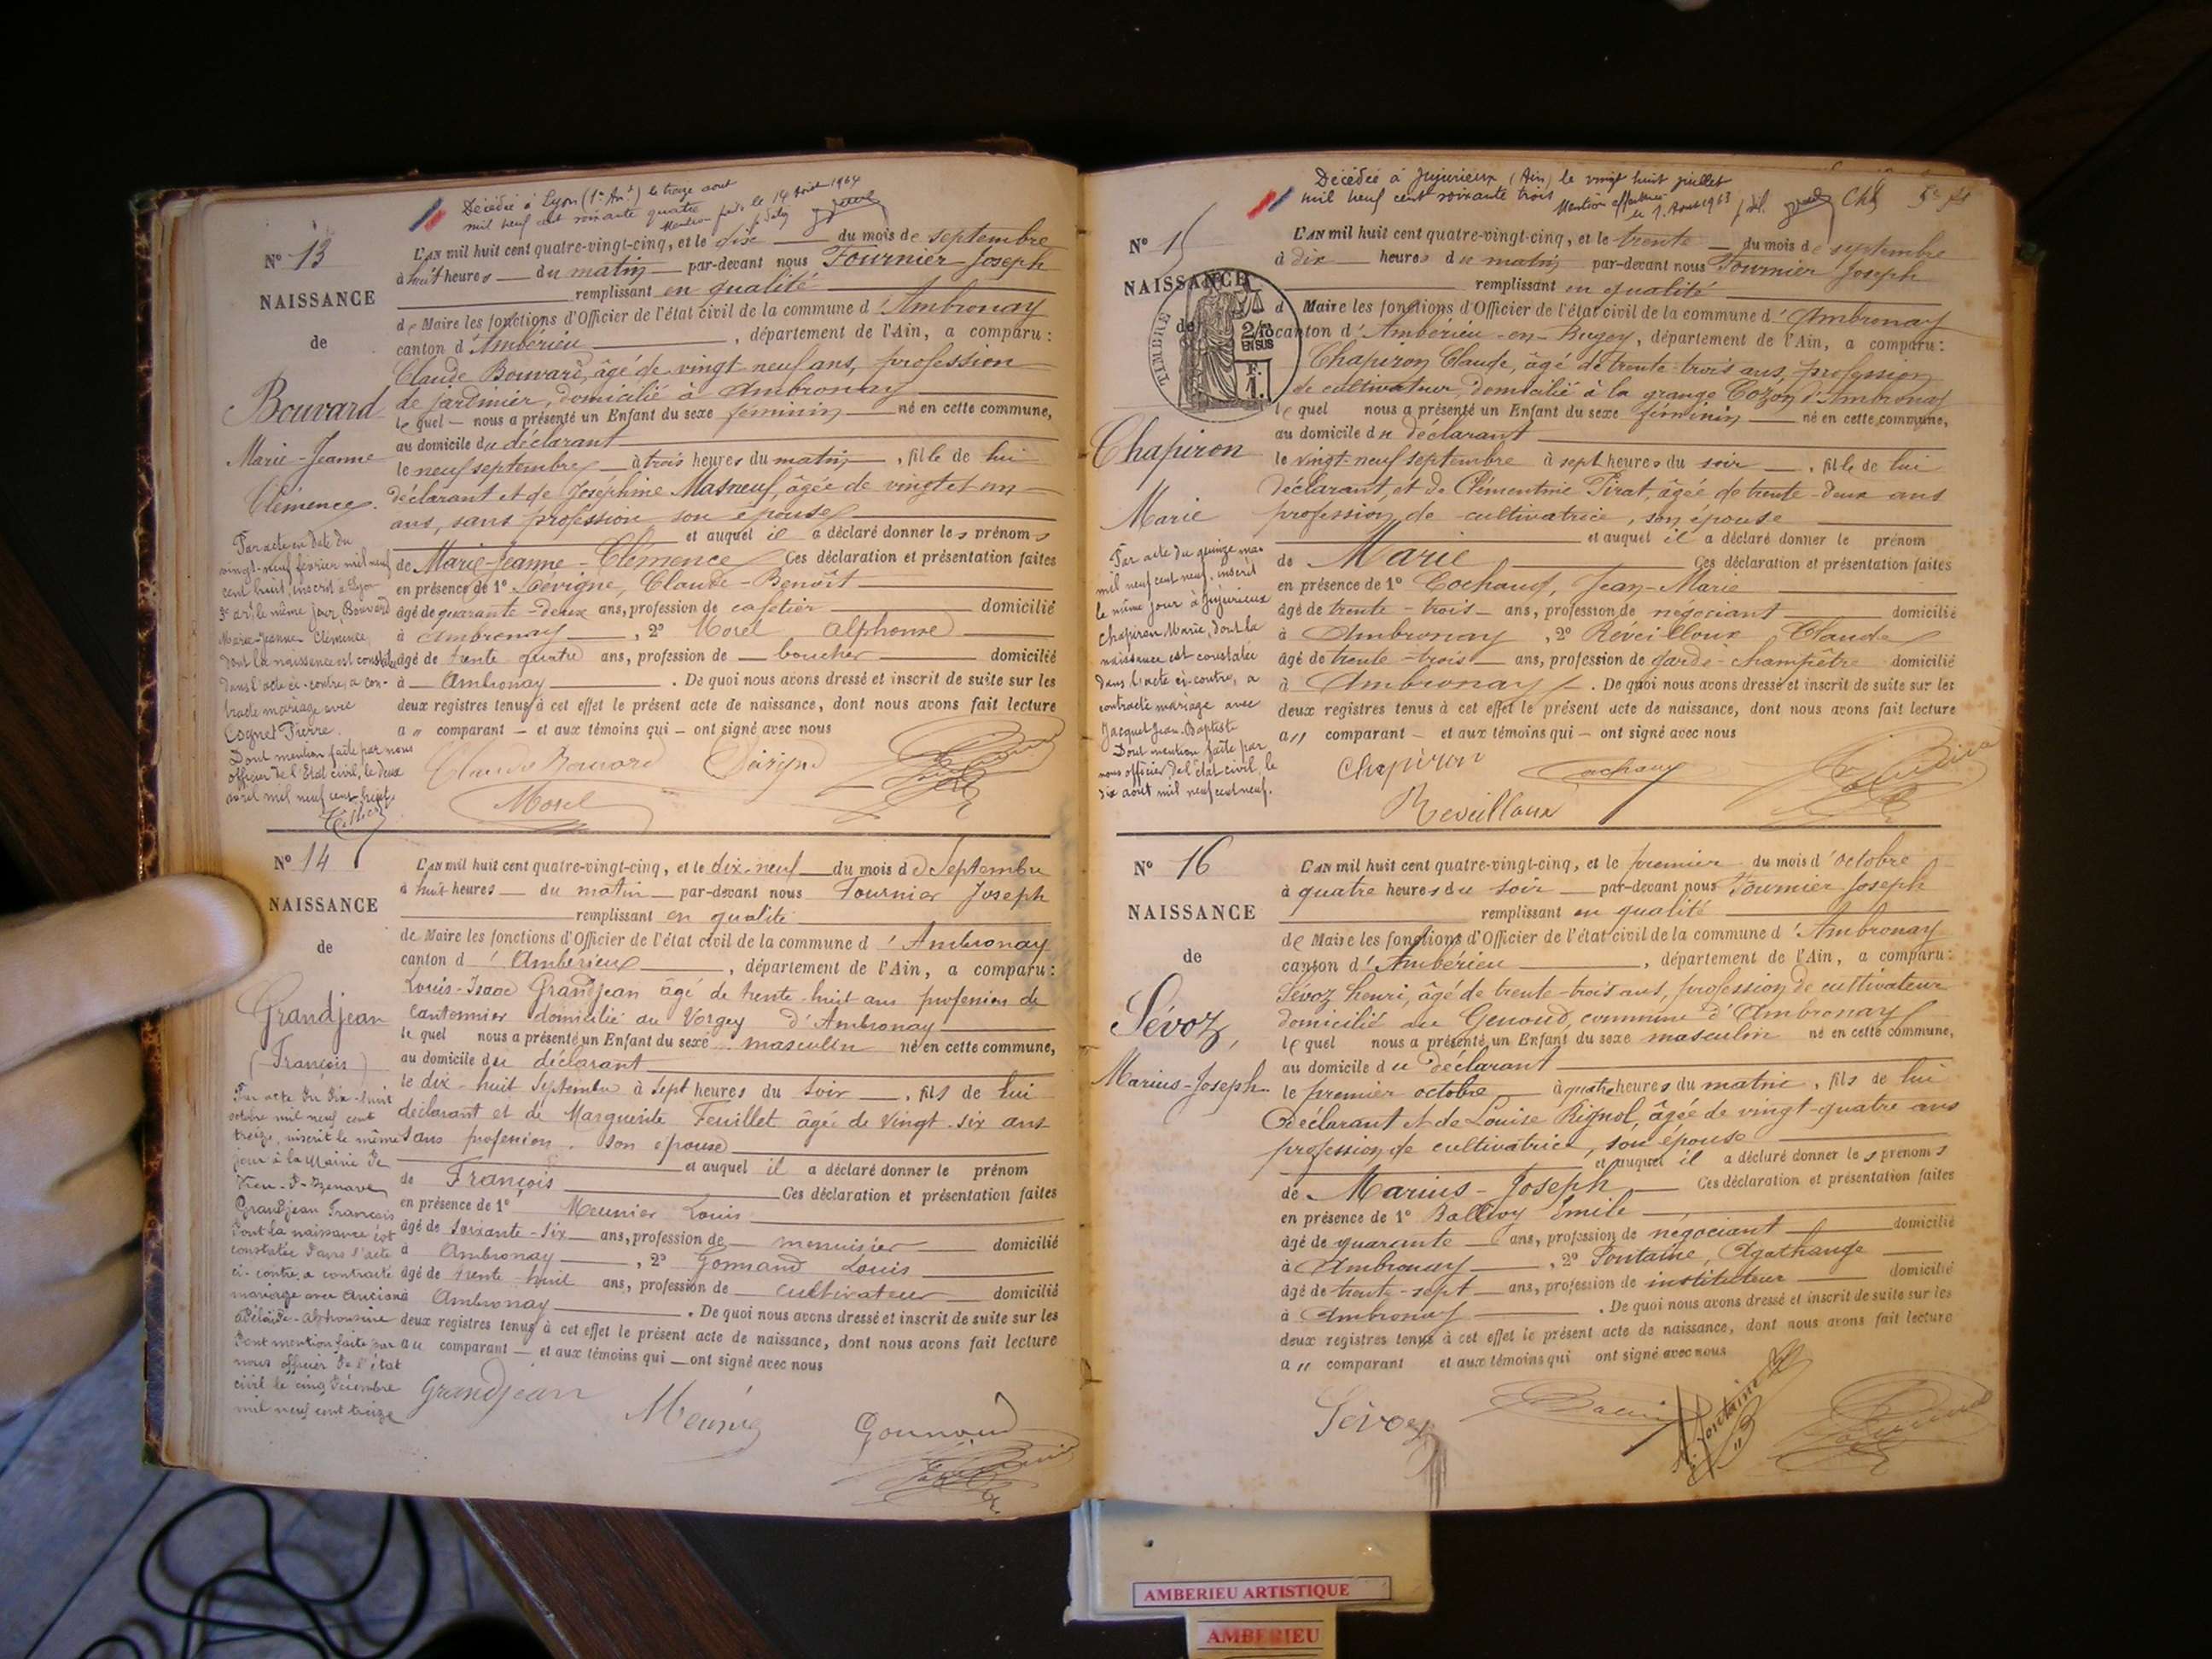 Décédée à Lyon (1er Arrt) le treize août
mil neuf cent soixante quatre
Mention faite le 14 Août 1964
N° 13
NAISSANCE
de
Bouvard
Marie-Jeanne
Clémence.
L'AN mil huit cent quatre-vingt-cinq, et le dix du mois de septembre
à huit heures du matin par-devant nous Fournier Joseph
remplissant en qualité
de Maire les fonctions d'Officier de l'état civil de la commune d'Ambronay
canton d'Ambérieu, département de l'Ain, a comparu :
Claude Bouvard, âgé de vingt-neuf ans, profession
de jardinier, domicilié à Ambronay
lequel nous a présenté un Enfant du sexe féminin né en cette commune,
au domicile du déclarant
le neuf septembre à trois heures du matin, fille de lui
déclarant et de Joséphine Masneuf, âgée de vingt et un
ans, sans profession son épouse
et auquel il a déclaré donner les prénoms
de Marie-Jeanne-Clémence Ces déclaration et présentation faites
en présence de 1° Sévigne, Claude-Benoît
âgé de quarante-deux ans, profession de cafetier domicilié
à Ambronay, 2° Morel Alphonse
âgé de trente quatre ans, profession de boucher domicilié
à Ambronay. De quoi nous avons dressé et inscrit de suite sur les
deux registres tenus à cet effet le présent acte de naissance, dont nous avons fait lecture
a" comparant et aux témoins qui ont signé avec nous
Par acte en date du
vingt-neuf février mil neuf
cent huit, inscrit à Lyon
3e arrt le même jour, Bouvard
Marie-Jeanne Clémence,
dont la naissance est constatée
dans l'acte ci-contre, a con-
tracté mariage avec
Cognet Pierre.
Dont mention faite par nous
officier de l'Etat civil, le deux
avril mil neuf cent huit.
Claude Bouvard
Morel
N° 14
NAISSANCE
de
Grandjean
(François)
L'AN mil huit cent quatre-vingt-cinq, et le dix-neuf du mois de Septembre
à huit heures du matin par-devant nous Fournier Joseph
remplissant en qualité
de Maire les fonctions d'Officier de l'état civil de la commune d'Ambronay
canton d'Ambérieux, département de l'Ain, a comparu :
Louis-Isaac Grandjean âgé de trente-huit ans profession de
cantonnier domicilié au Vorgey d'Ambronay
lequel nous a présenté un Enfant du sexe masculin né en cette commune,
au domicile du déclarant
le dix-huit Septembre à sept heures du soir, fils de lui
déclarant et de Marguerite Feuillet âgée de vingt-six ans
sans profession son épouse
et auquel il a déclaré donner le prénom
de François Ces déclaration et présentation faites
en présence de 1° Meunier Louis
âgé de soixante-six ans, profession de menuisier domicilié
à Ambronay, 2° Gonnand Louis
âgé de trente huit ans, profession de cultivateur domicilié
Ambronay. De quoi nous avons dressé et inscrit de suite sur les
deux registres tenus à cet effet le présent acte de naissance, dont nous avons fait lecture
au comparant et aux témoins qui ont signé avec nous
Par acte du dix-huit
octobre mil neuf cent
treize, inscrit le même
jour à la Mairie de
Vieu-d'Izenave,
Grandjean François
dont la naissance est
constatée dans l'acte
ci-contre, a contracté
mariage avec Ancian
Adélaïde-Alphonsine
Dont mention faite par
nous officier de l'état
civil le cinq Décembre
mil neuf cent treize
Grandjean
Meunier
Gonnand
Décédée à Jujurieux (Ain) le vingt huit juillet
mil neuf cent soixante trois
Mention effectuée
le 1. Août 1963
N° 15
NAISSANCE
de
TIMBRE
2/10
EN SUS
F.
1.
Chapiron
Marie
L'AN mil huit cent quatre-vingt-cinq, et le trente du mois de septembre
à dix heures du matin par-devant nous Fournier Joseph
remplissant en qualité
d Maire les fonctions d'Officier de l'état civil de la commune d'Ambronay
canton d'Ambérieu-en-Bugey, département de l'Ain, a comparu :
Chapiron Claude, âgé de trente-trois ans, profession
de cultivateur, domicilié à la grange Cozon d'Ambronay
lequel nous a présenté un Enfant du sexe féminin né en cette commune,
au domicile du déclarant
le vingt-neuf septembre à sept heures du soir, fille de lui
déclarant, et de Clémentine Pirat, âgée de trente-deux ans
profession de cultivatrice, son épouse
et auquel il a déclaré donner le prénom
de Marie Ces déclaration et présentation faites
en présence de 1° Cochaud, Jean-Marie
âgé de trente-trois ans, profession de négociant domicilié
à Ambronay, 2° Réveilloux Claude
âgé de trente-trois ans, profession de garde-champêtre domicilié
à Ambronay. De quoi nous avons dressé et inscrit de suite sur les
deux registres tenus à cet effet le présent acte de naissance, dont nous avons fait lecture
a" comparant et aux témoins qui ont signé avec nous
Par acte du quinze mai
mil neuf cent neuf, inscrit
le même jour à Jujurieux
Chapiron Marie, dont la
naissance est constatée
dans l'acte ci-contre, a
contracté mariage avec
Jacquet Jean-Baptiste
Dont mention faite par
nous officier de l'état civil, le
dix août mil neuf cent neuf.
Chapiron
Cochaud
Reveilloux
N° 16
NAISSANCE
de
Sévoz,
Marius-Joseph.
L'AN mil huit cent quatre-vingt-cinq, et le premier du mois d'octobre
à quatre heures du soir par-devant nous Fournier Joseph
remplissant en qualité
de Maire les fonctions d'Officier de l'état civil de la commune d'Ambronay
canton d'Ambérieu, département de l'Ain, a comparu :
Sévoz henri, âgé de trente-trois ans, profession de cultivateur
domicilié au Genoud, commune d'Ambronay
lequel nous a présenté un Enfant du sexe masculin né en cette commune,
au domicile du déclarant
le premier octobre à quatre heures du matin, fils de lui
déclarant et de Louise Rignol, âgée de vingt-quatre ans
profession de cultivatrice, son épouse
et auquel il a déclaré donner les prénoms
de Marius-Joseph Ces déclaration et présentation faites
en présence de 1° Ballivy Émile
âgé de quarante ans, profession de négociant domicilié
à Ambronay, 2° Fontaine, Agathange
âgé de trente-sept ans, profession de instituteur domicilié
à Ambronay. De quoi nous avons dressé et inscrit de suite sur les
deux registres tenus à cet effet le présent acte de naissance, dont nous avons fait lecture
a" comparant et aux témoins qui ont signé avec nous
Sévoz
A. Fontaine
AMBERIEU ARTISTIQUE
AMBERIEU